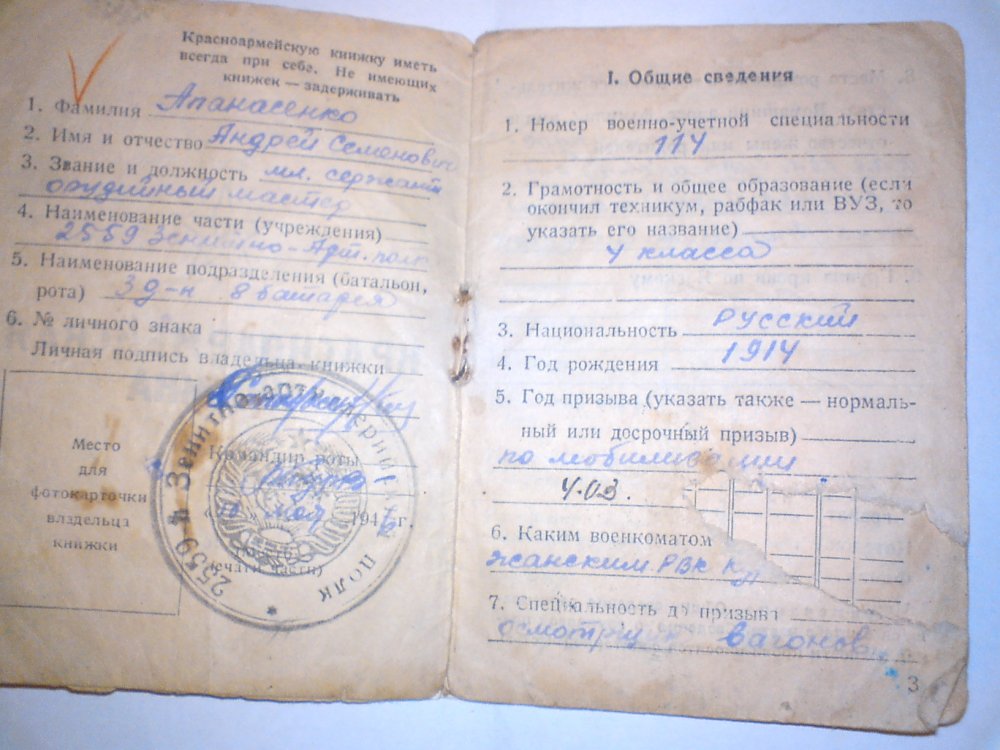 Красноармейскую книжку иметь
всегда при себе. Не имеющих
книжек — задерживать
1. Фамилия Апанасенко
2. Имя и отчество Андрей Семенович
3. Звание и должность мл. сержант
орудийный мастер
4. Наименование части (учреждения)
2559 Зенитно-Арт. полк
5. Наименование подразделения (батальон,
рота) 3 д-н 8 батарея
6. № личного знака
Личная подпись владельца книжки
Место
для
фотокарточки
владельца
книжки
Командир роты
мая 194 г.
(печать части)
2559й Зенитно-артиллерийский полк
I. Общие сведения
1. Номер военно-учетной специальности
114
2. Грамотность и общее образование (если
окончил техникум, рабфак или ВУЗ, то
указать его название)
4 класса
3. Национальность РУССКИЙ
4. Год рождения 1914
5. Год призыва (указать также — нормаль-
ный или досрочный призыв)
по мобилизации
403.
6. Каким военкоматом
жанским РВК
7. Специальность до призыва
осмотрщик вагонов
3